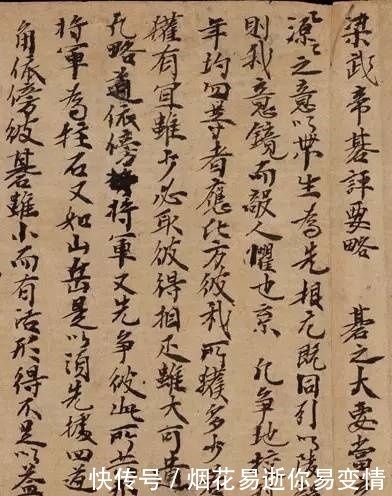 梁武帝碁評要略 碁之大要當
源之意以帶生為先根元既同引以
則我意鏡而敵人懼也京 凡爭地校
年均四等者應比方彼我所獲多少
權有宜雖少必取彼得相疋雖大可
凡略道依傍将軍又先争彼此所共
将軍為柱石又如山岳是以須先據四道
角依傍彼碁雖小而有活形得不足以益
快传号 / 烟花易逝你易变情